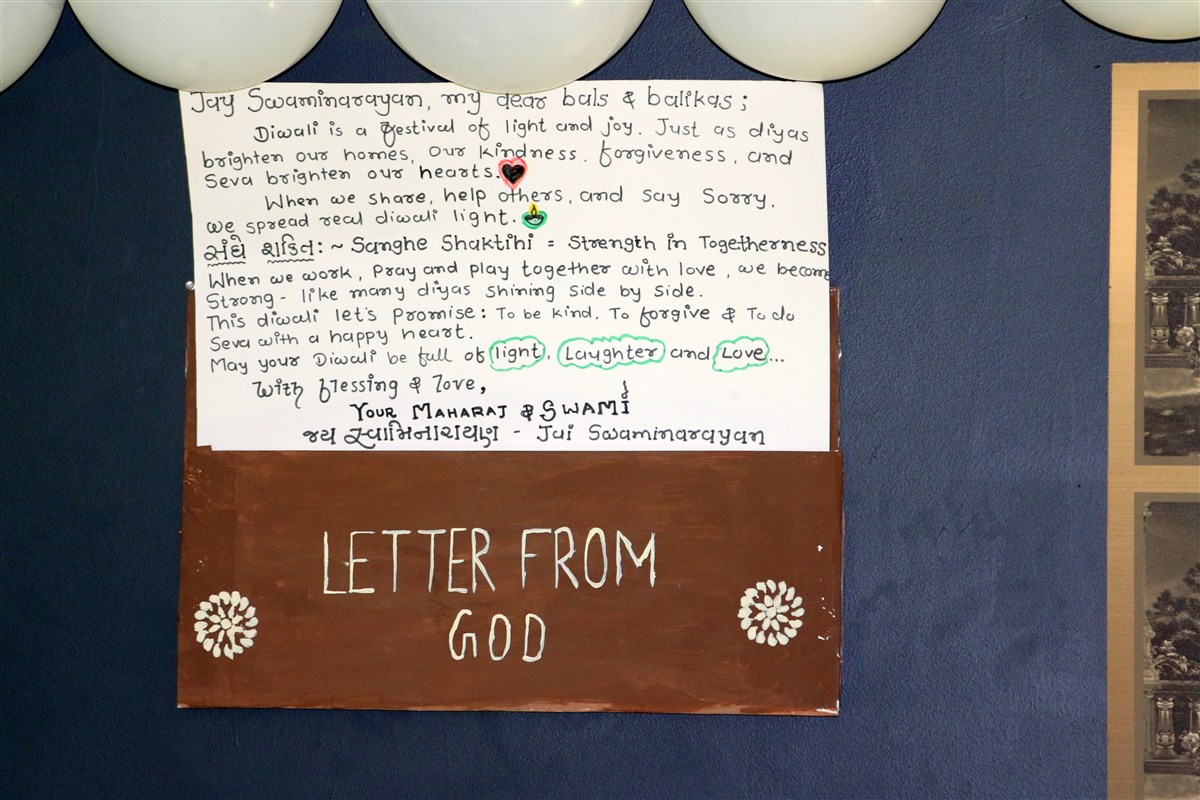 Jay Swaminarayan, my dear bals & balikas;
Diwali is a festival of light and joy. Just as diyas
brighten our homes, our kindness, forgiveness, and
Seva brighten our hearts.
When we share, help others, and say Sorry,
we spread real diwali light.
સંઘે શક્તિ: ~ Sanghe Shaktihi = Strength in Togetherness
When we work, Pray and play together with love, we become
Strong - like many diyas shining side by side.
This diwali let's Promise: To be kind, To forgive & To do
Seva with a happy heart.
May your Diwali be full of light, Laughter and Love...
With blessing & love,
YOUR MAHARAJ & SWAMI
જય સ્વામિનારાયણ - Jai Swaminarayan
LETTER FROM
GOD